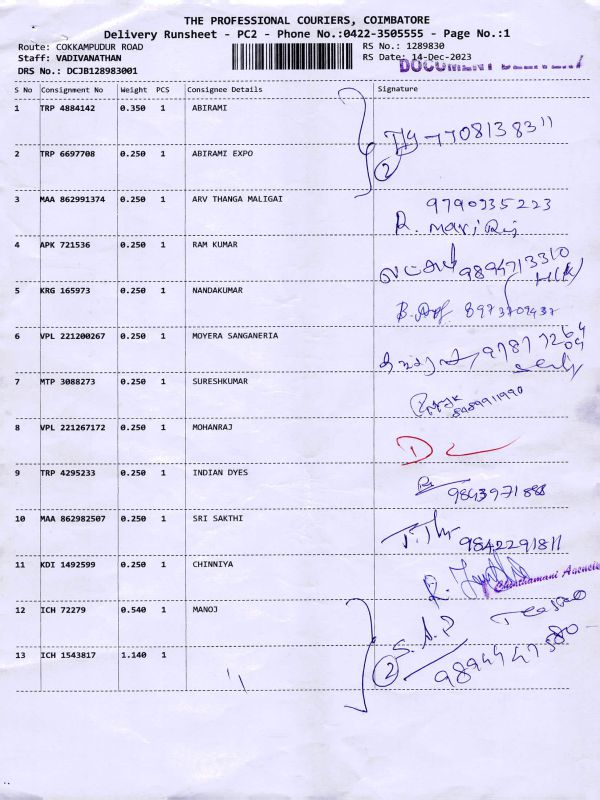 THE PROFESSIONAL COURIERS, COIMBATORE
Delivery Runsheet - PC2 - Phone No.:0422-3505555 - Page No.:1
Route: COKKAMPUDUR ROAD
RS No.: 1289830
Staff: VADIVANATHAN
RS Date: 14-Dec-2023
DOCUMENT DELIVERY
DRS No.: DCJB128983001
S No Consignment No Weight PCS Consignee Details Signature
1 TRP 4884142 0.350 1 ABIRAMI
7708138311
2 TRP 6697708 0.250 1 ABIRAMI EXPO
2
3 MAA 862991374 0.250 1 ARV THANGA MALIGAI
9790935223
4 APK 721536 0.250 1 RAM KUMAR
9894713310
5 KRG 165973 0.250 1 NANDAKUMAR
8973709437
6 VPL 221200267 0.250 1 MOYERA SANGANERIA
7 MTP 3088273 0.250 1 SURESHKUMAR
8 VPL 221267172 0.250 1 MOHANRAJ
9 TRP 4295233 0.250 1 INDIAN DYES
10 MAA 862982507 0.250 1 SRI SAKTHI
9842291811
11 KDI 1492599 0.250 1 CHINNIYA
Chinthamani Agencies
12 ICH 72279 0.540 1 MANOJ
S. A. P
13 ICH 1543817 1.140 1
2